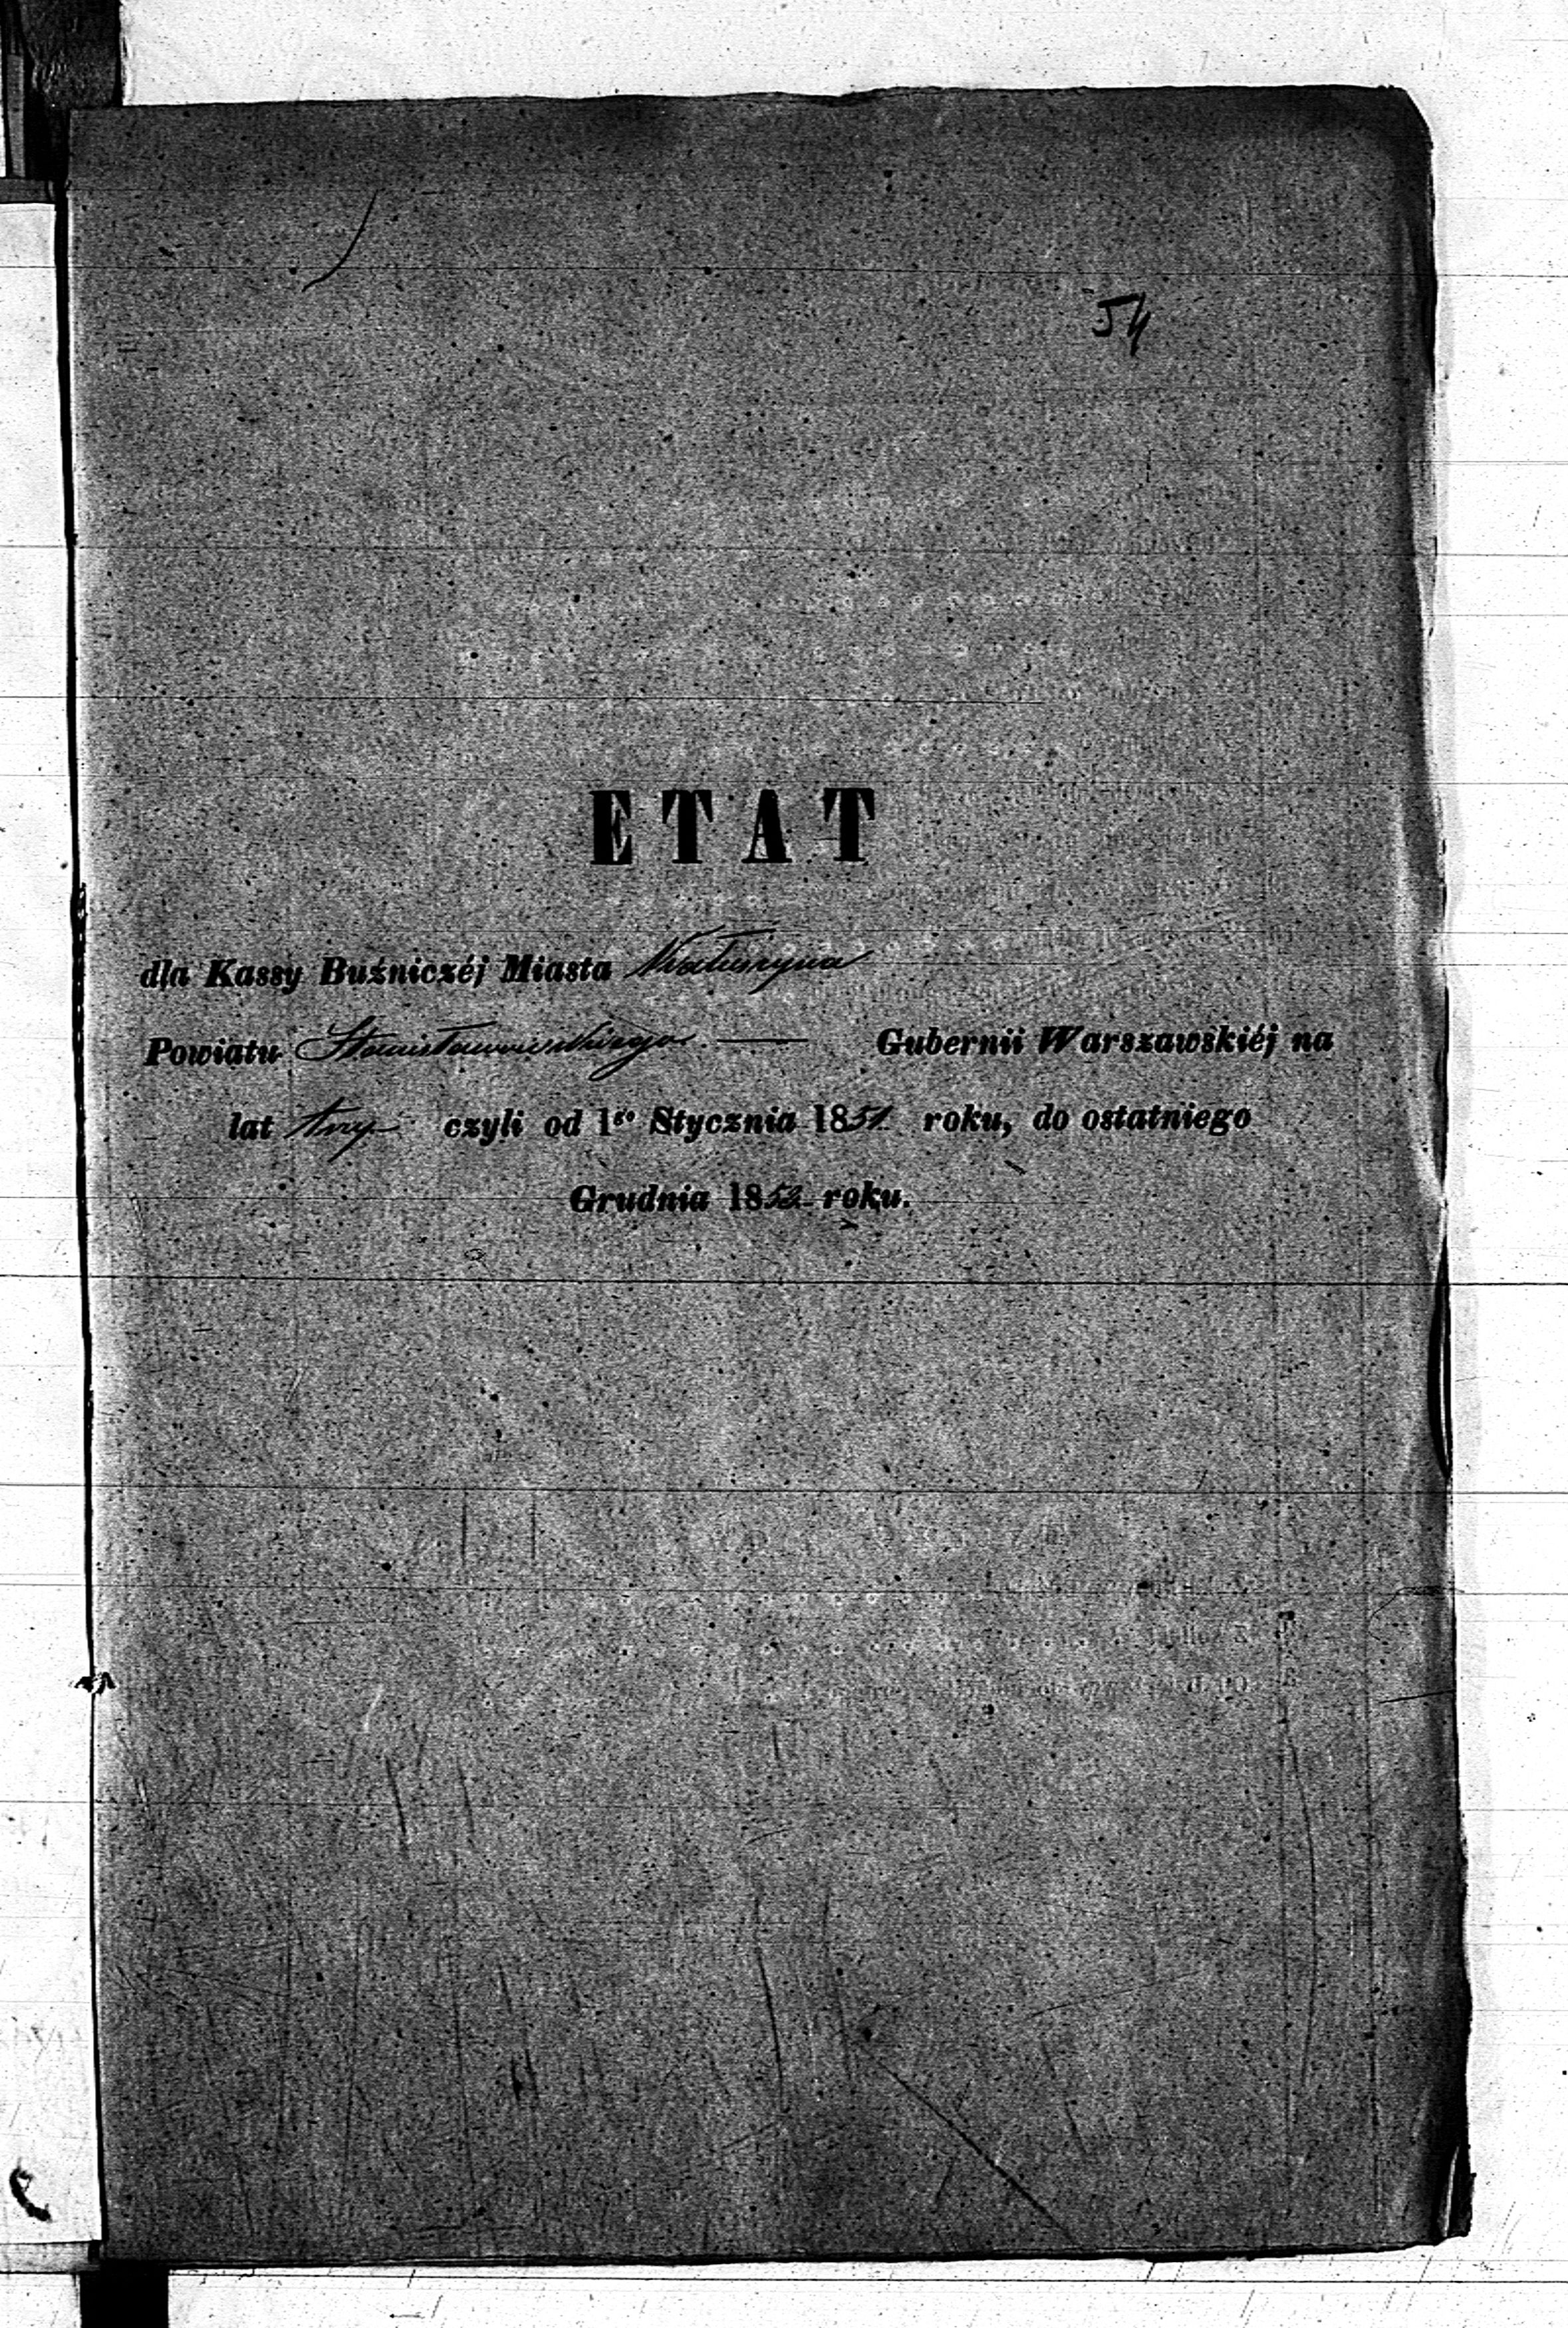 54
ETAT
dla Kassy Buźniczéj Miasta Kałuszyna
Powiatu Stanisławowskiego. — Gubernii Warszawskiéj na
lat trzy czyli od 1go Stycznia 1851 roku, do ostatniego
Grudnia 1853 roku.